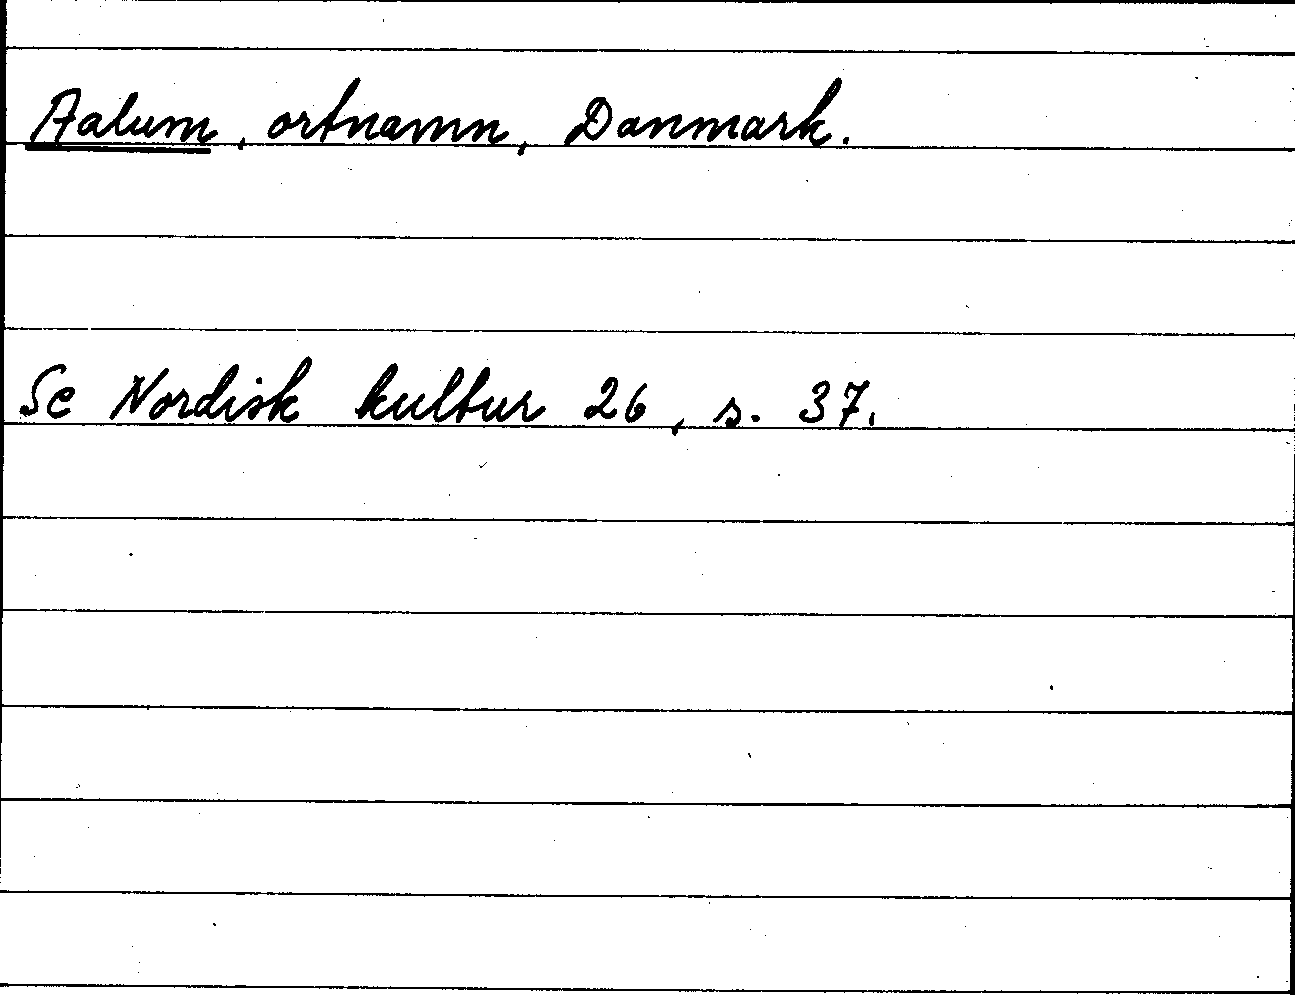 Aalum, ortnamn, Danmark.
Se Nordisk kultur 26, s. 37.